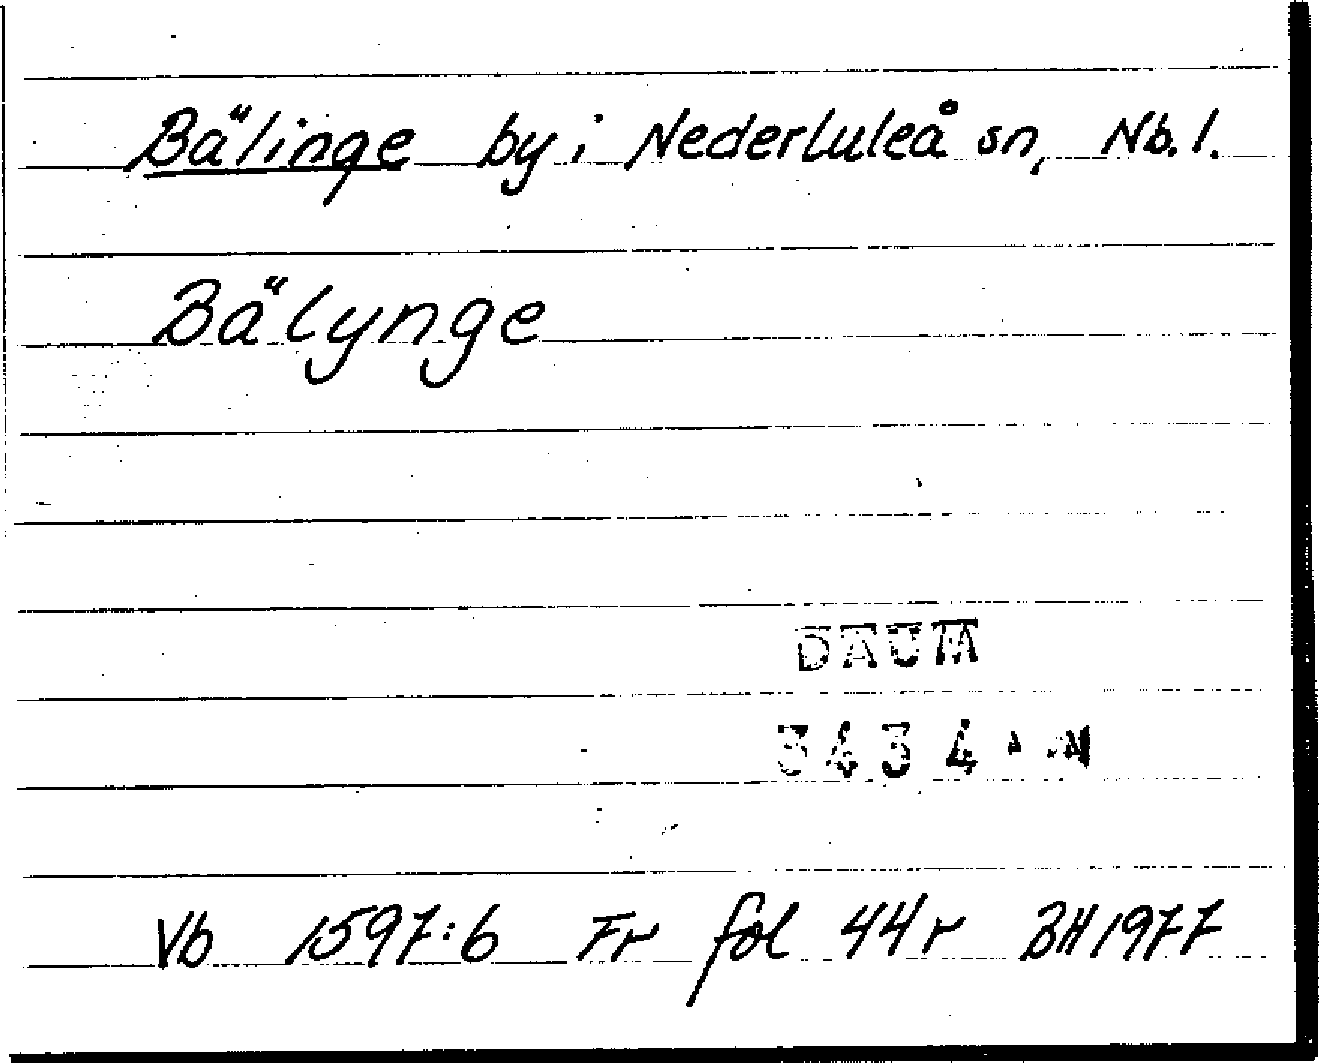 Bälinge by i Nederluleå sn, Nb. l.
Bälynge
DAUM
3434
Vb 1597:6 Fr fol 44r BH 1977